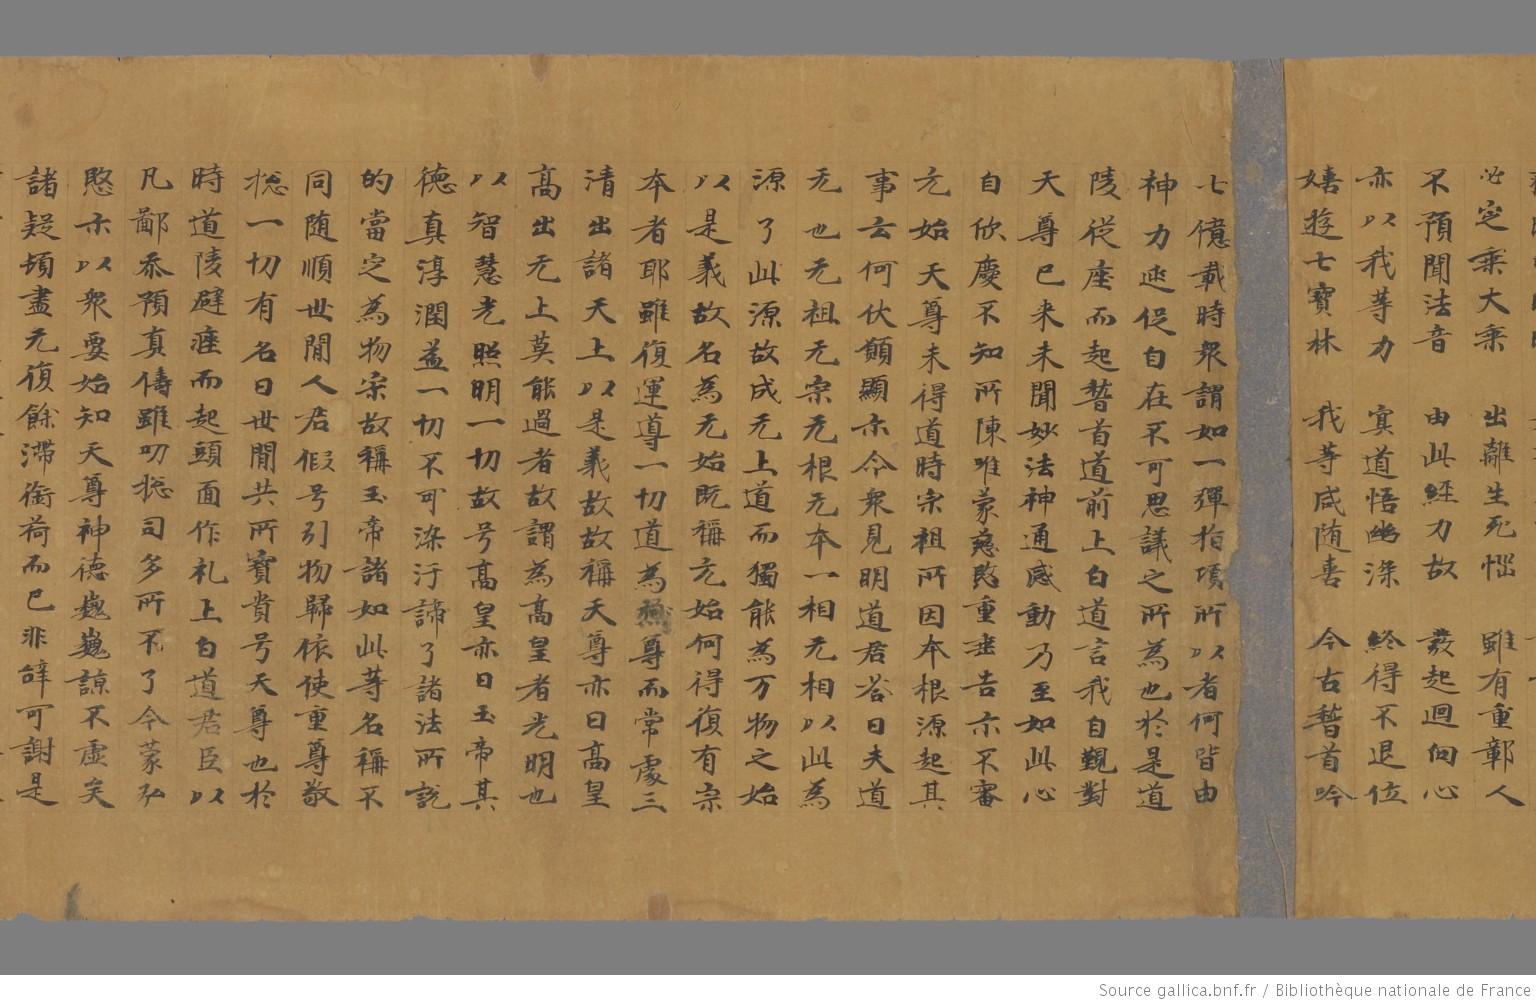 必定乘大乘　出離生死惱　雖有重鄣人
不預聞法音　由此經力故　發起迴向心
亦以我等力　冥道悟幽深　終得不退位
嬉遊七寶林　我等咸随喜　今古稽首吟
七億載時衆謂如一彈指頃所以者何皆由
神力速促自在不可思議之所為也於是道
陵從座而起稽首道前上白道言我自覲對
天尊已来未聞妙法神通感動乃至如此心
自欣慶不知所陳唯蒙慈愍重垂告示不審
元始天尊未得道時宗祖所因本根源起其
事云何伏願顯示令衆見明道君答曰夫道
无也无祖无宗无根无本一相无相以此為
源了此源故成无上道而獨能為万物之始
以是義故名為元始既稱元始何得復有宗
本者耶雖復運導一切道為尊而常處三
清出諸天上以是義故故稱天尊亦曰高皇
高出无上莫能過者故謂為高皇者光明也
以智慧光照明一切故号高皇亦曰玉帝其
德真淳潤益一切不可染汙諦了諸法所說
的當定為物宗故稱玉帝諸如此等名稱不
同随順世間人君假号引物歸依使重尊敬
惣一切有名曰世間共所寳貴号天尊也於
時道陵躃痓而起頭面作礼上白道君臣以
凡鄙忝預真儔雖叨惣司多所不了今蒙弘
愍示以衆要始知天尊神德巍巍諒不虛矣
諸疑頓盡无復餘滯銜荷而已非辞可謝是